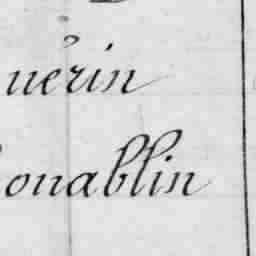 uérin
onablin